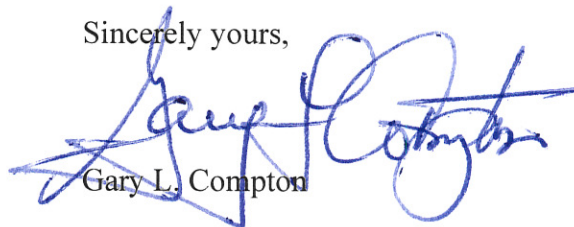 Sincerely yours,
Gary L Compton
Gary L. Compton